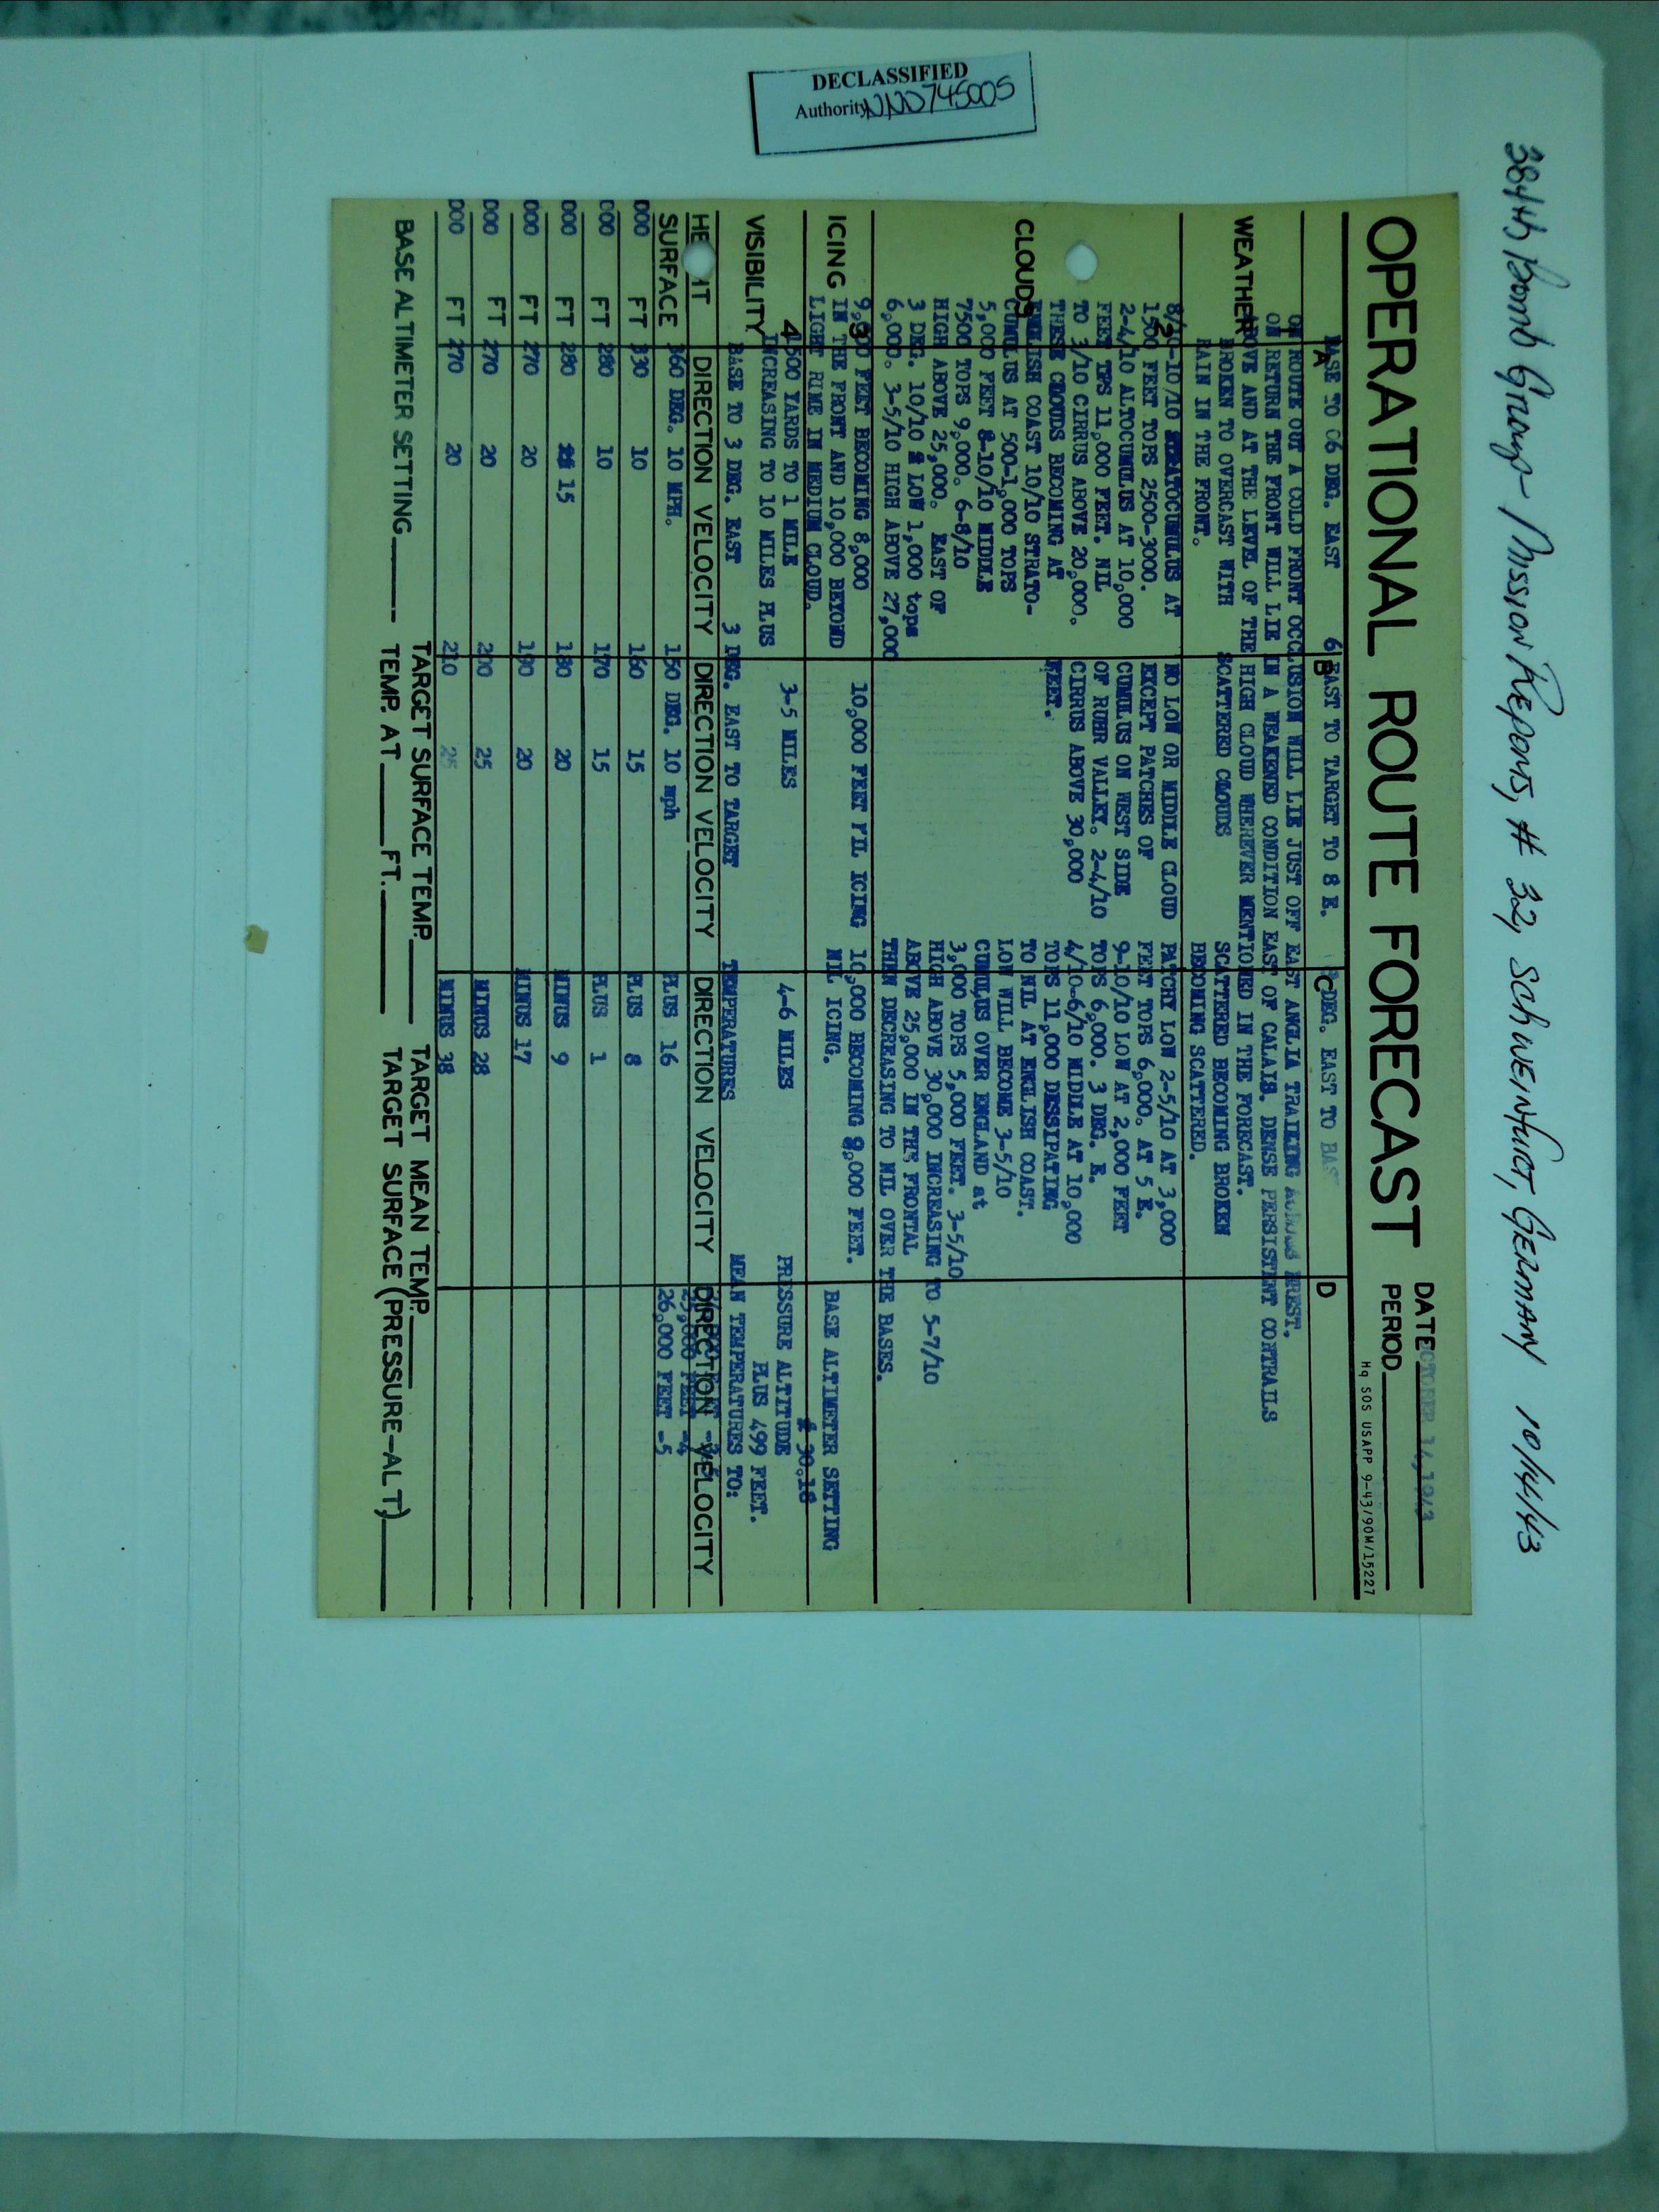 DECLASSIFIED
Authority NND745005
384th Bomb Group - Mission Reports, # 32, Schweinfurt, Germany 10/14/43
OPERATIONAL ROUTE FORECAST
DATE OCTOBER 14, 1943
PERIOD
Hq SOS USAPP 9-43/90M/15227
A B C D
BASE TO 06 DEG. EAST 6 EAST TO TARGET TO 8 E. DEG. EAST TO BASE
WEATHER
1
ON ROUTE OUT A COLD FRONT OCCLUSION WILL LIE JUST OFF EAST ANGLIA TRAILING BREST.
ON RETURN THE FRONT WILL LIE IN A WEAKENED CONDITION EAST OF CALAIS. DENSE PERSISTENT CONTRAILS
ABOVE AND AT THE LEVEL OF THE HIGH CLOUD WHEREVER MENTIONED IN THE FORECAST.
BROKEN TO OVERCAST WITH SCATTERED CLOUDS SCATTERED BECOMING BROKEN
RAIN IN THE FRONT. BECOMING SCATTERED.
CLOUDS
2
8/10-10/10 STRATOCUMULUS AT
1500 FEET TOPS 2500-3000.
2-4/10 ALTOCUMULUS AT 10,000
FEET TPS 11,000 FEET. NIL
TO 3/10 CIRRUS ABOVE 20,000.
THESE CLOUDS BECOMING AT
ENGLISH COAST 10/10 STRATO-
CUMULUS AT 500-1,000 TOPS
5,000 FEET 8-10/10 MIDDLE
7500 TOPS 9,000. 6-8/10
HIGH ABOVE 25,000. EAST OF
3 DEG. 10/10 LOW 1,000 tops
6,000. 3-5/10 HIGH ABOVE 27,000
NO LOW OR MIDDLE CLOUD
EXCEPT PATCHES OF
CUMULUS ON WEST SIDE
OF RUHR VALLEY. 2-4/10
CIRRUS ABOVE 30,000
FEET.
PATCHY LOW 2-5/10 AT 3,000
FEET TOPS 6,000. AT 5 E.
9-10/10 LOW AT 2,000 FEET
TOPS 6,000. 3 DEG. E.
4/10-6/10 MIDDLE AT 10,000
TOPS 11,000 DESSIPATING
TO NIL AT ENGLISH COAST.
LOW WILL BECOME 3-5/10
CUMULUS OVER ENGLAND at
3,000 TOPS 5,000 FEET. 3-5/10
HIGH ABOVE 30,000 INCREASING TO 5-7/10
ABOVE 25,000 IN THE FRONTAL
THEN DECREASING TO NIL OVER THE BASES.
ICING
3
9,000 FEET BECOMING 8,000
IN THE FRONT AND 10,000 BEYOND
LIGHT RIME IN MEDIUM CLOUD.
10,000 FEET NIL ICING
10,000 BECOMING 8,000 FEET.
NIL ICING.
BASE ALTIMETER SETTING
30.18
VISIBILITY
4
4500 YARDS TO 1 MILE
INCREASING TO 10 MILES PLUS
3-5 MILES
4-6 MILES
PRESSURE ALTITUDE
PLUS 499 FEET.
BASE TO 3 DEG. EAST 3 DEG. EAST TO TARGET TEMPERATURES MEAN TEMPERATURES TO:
DIRECTION VELOCITY DIRECTION VELOCITY DIRECTION VELOCITY DIRECTION VELOCITY
SURFACE 360 DEG. 10 MPH. 150 DEG. 10 mph PLUS 16 26,000 FEET -5
000 FT 330 10 160 15 PLUS 8
000 FT 280 10 170 15 PLUS 1
000 FT 280 15 180 20 MINUS 9
000 FT 270 20 190 20 MINUS 17
000 FT 270 20 200 25 MINUS 28
000 FT 270 20 210 25 MINUS 38
TARGET SURFACE TEMP. TARGET MEAN TEMP.
BASE ALTIMETER SETTING TEMP. AT FT. TARGET SURFACE (PRESSURE-ALT)